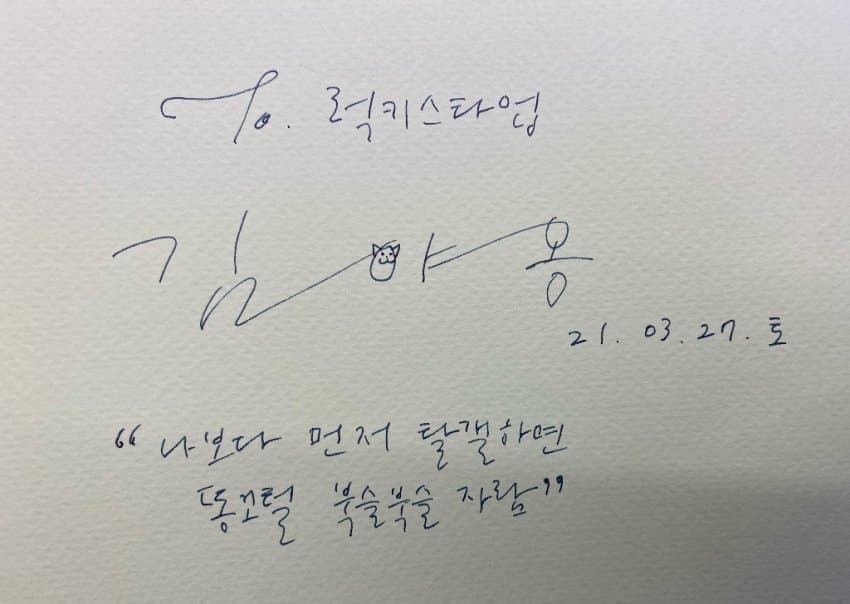 To. 럭키스타업
김야옹
21. 03. 27. 토
“나보다 먼저 탈갤하면
똥꼬털 북슬북슬 자람”